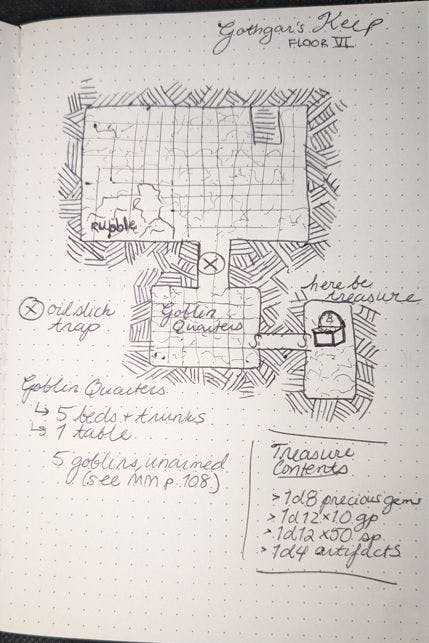 Gothgar's Keep
FLOOR VI
Rubble
X
here be
treasure
X oil slick
trap
Goblin
Quarters
S
S
Goblin Quarters
↳ 5 beds + trunks
↳ 1 table
5 goblins, unarmed
(see MM p. 108)
Treasure
Contents
> 1d8 precious gems
> 1d12×10 gp
> 1d12×50 sp
> 1d4 artifacts